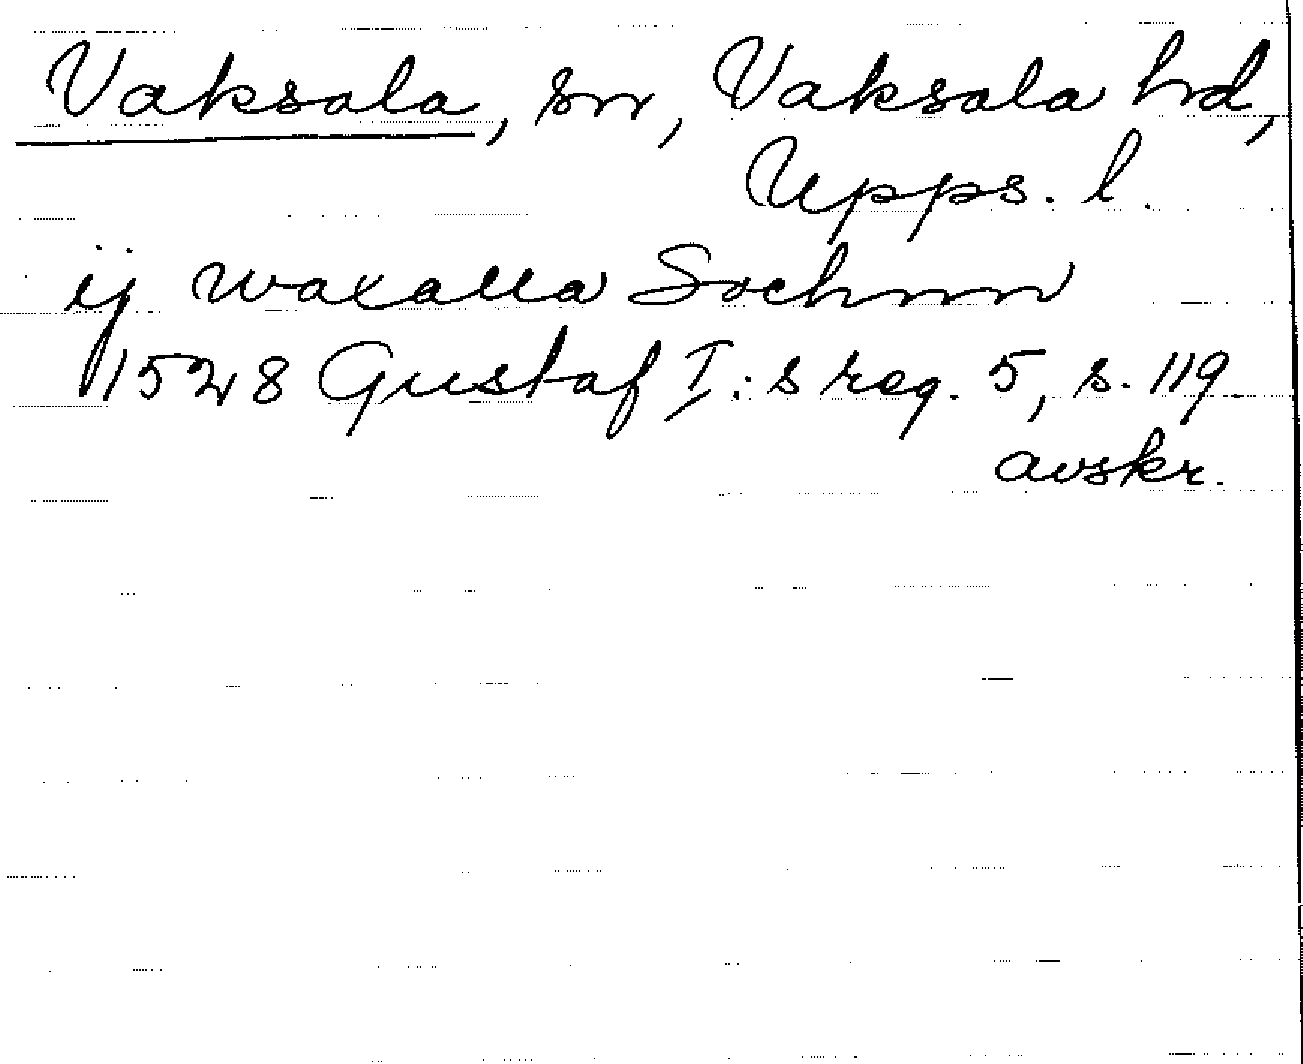 Vaksala, sn, Vaksala hd,
Upps. l.
ij waxalla Sochnn
1528 Gustaf I:s reg. 5, s. 119
avskr.